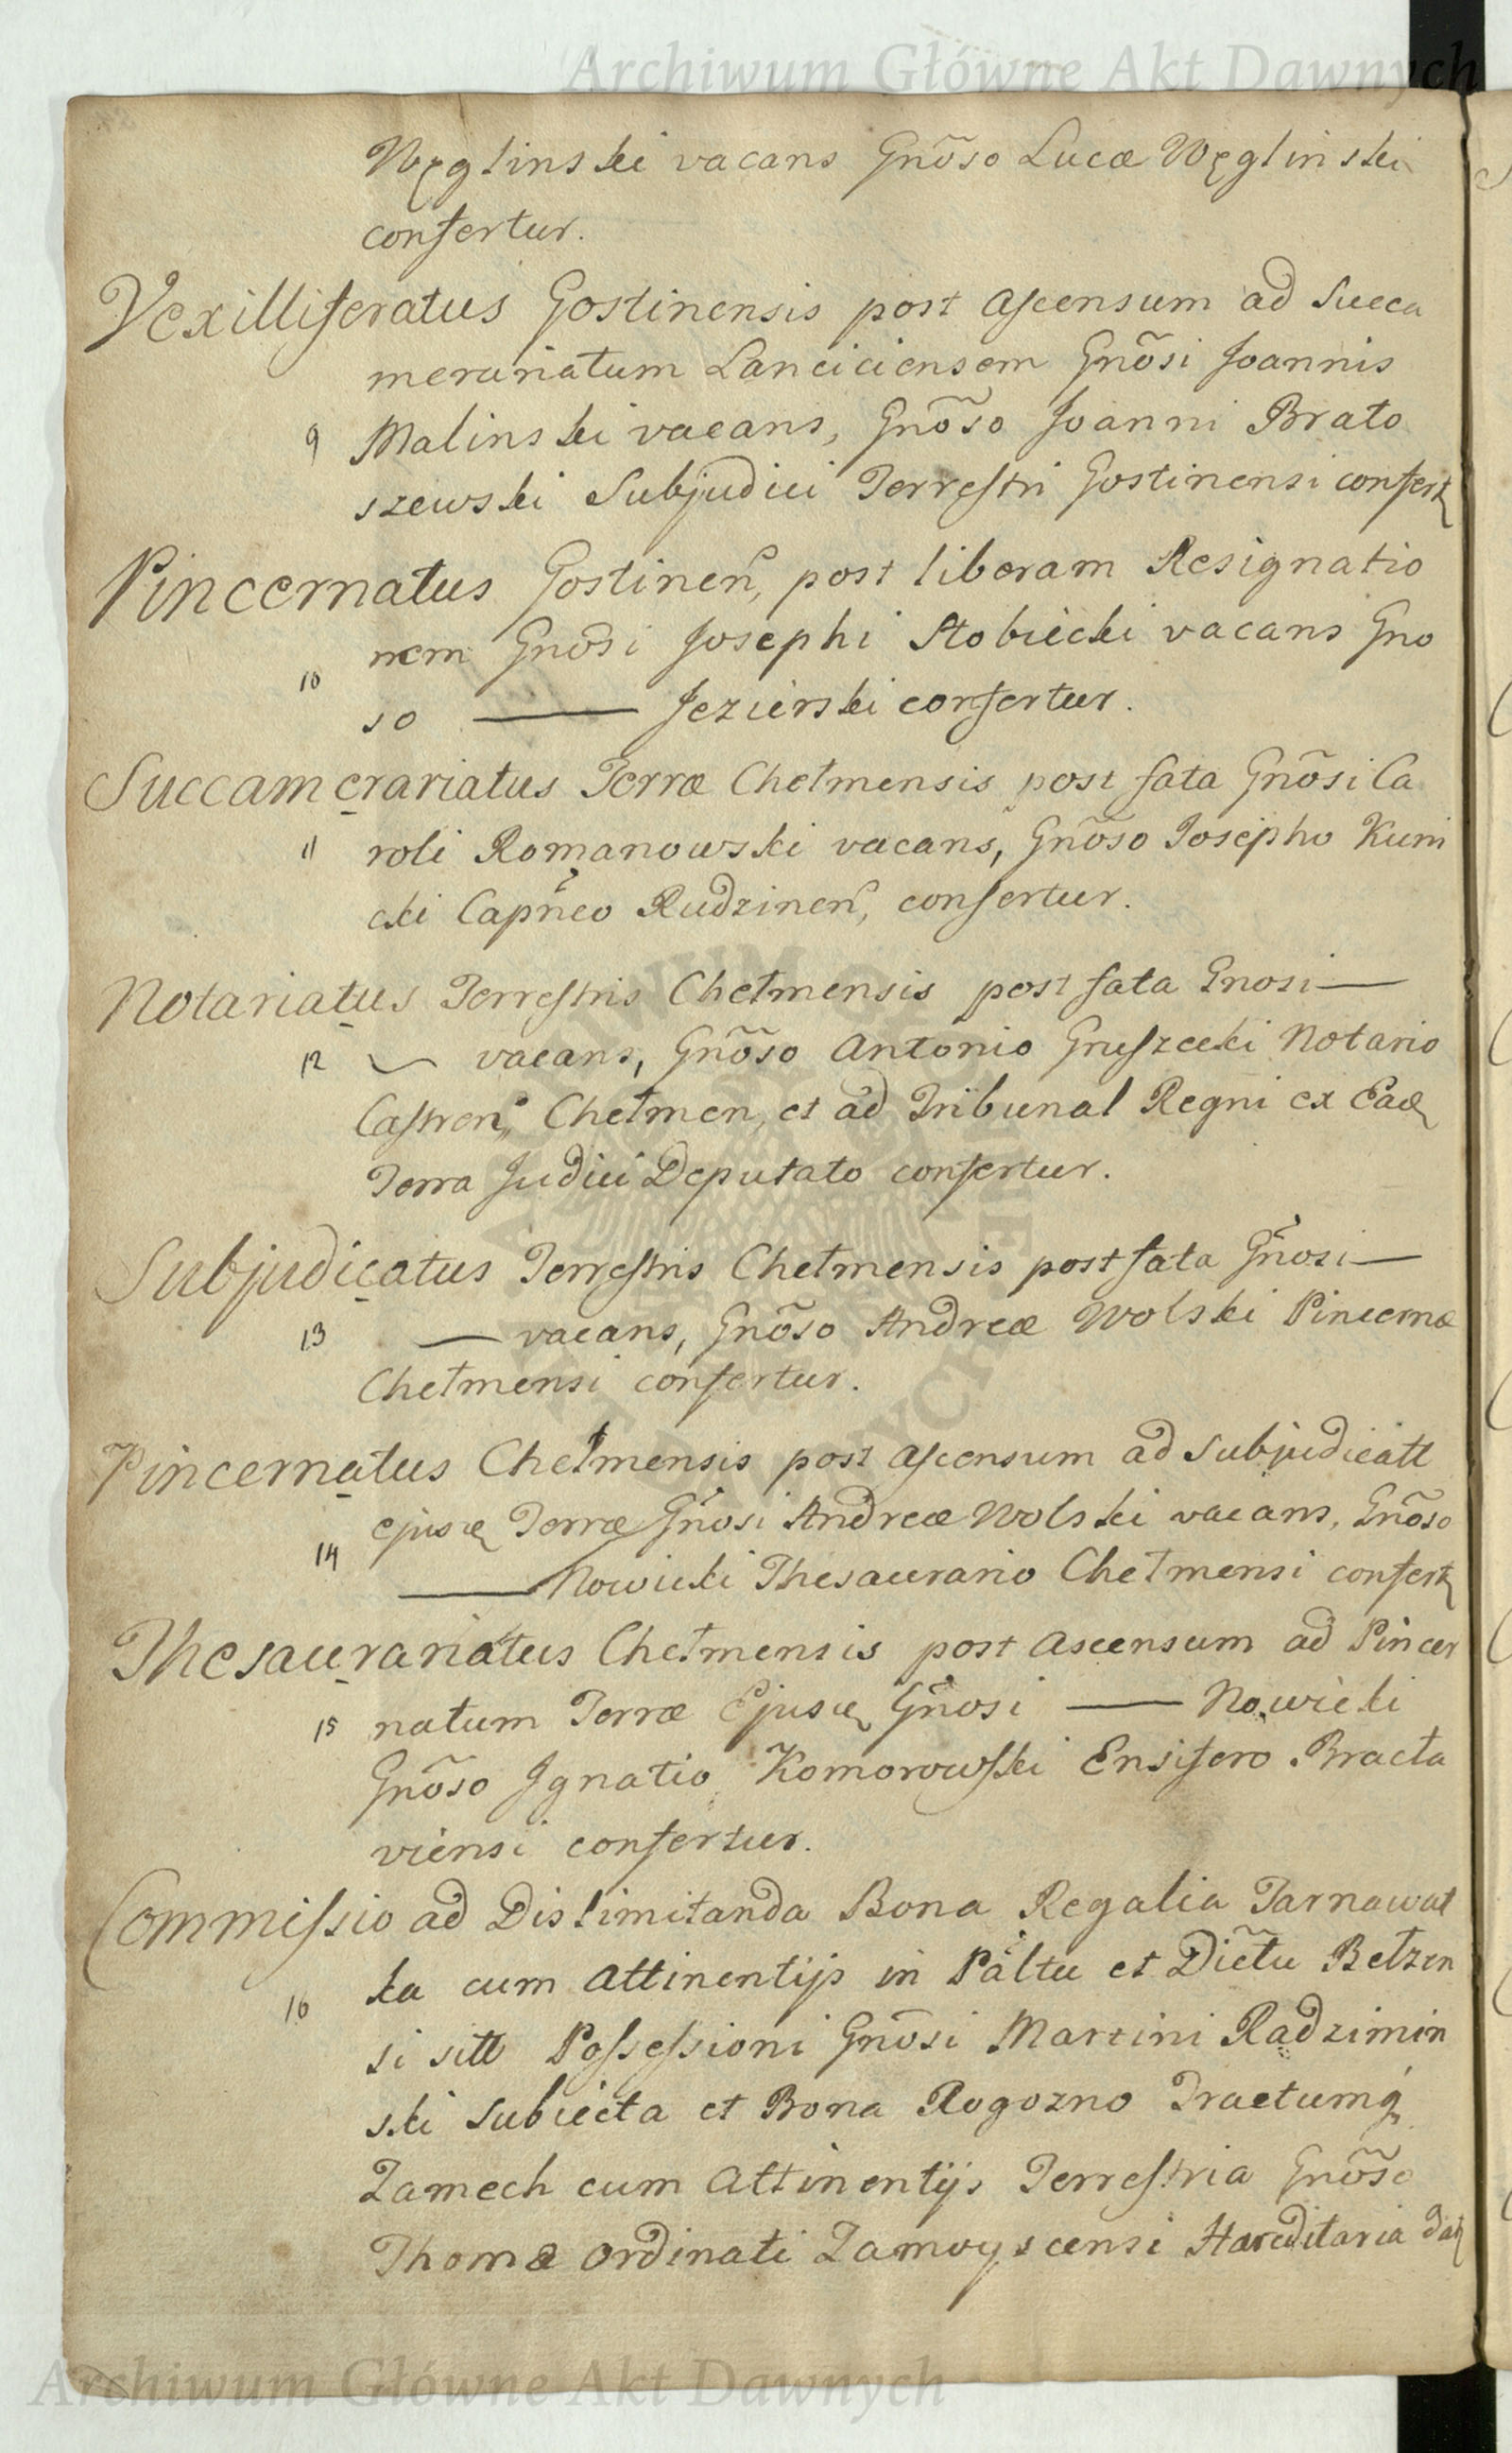 Archiwum Główne Akt Dawnych
Węglinski vacans Gnõso Lucæ Węglinski
confertur.
Vexilliferatus Gostinensis post ascensum ad Succa
merariatum Lanciciensem Gnõsi Joannis
9 Malinski vacans, Gnõso Joanni Brato
szewski Subjudici Terrestri Gostinensi confert
Pincernatus Gostinen, post liberam Resignatio
nem Gnõsi Josephi Stobiecki vacans Gno
10
so — Jezierski confertur.
Succamerariatus Terræ Chełmensis post fata Gnõsi Ca
11 roli Romanowski vacans, Gnõso Josepho Kuni
cki Capñeo Rudzinen, confertur.
Notariatus Terrestris Chełmensis post fata Gnosi —
12 — vacans, Gnõso Antonio Gruszecki Notario
Castren, Chełmen, et ad Tribunal Regni ex Ead
Terra Judici Deputato confertur.
Subjudicatus Terrestris Chełmensis post fata Gñosi —
13 — vacans, Gnõso Andreæ Wolski Pincernæ
Chełmensi confertur.
Pincernatus Chełmensis post ascensum ad Subjudicatt
ejusd Terræ Gñosi Andreæ Wolski vacans, Gnõso
14
— Nowicki Thesaurario Chełmensi confert
Thesaurariatus Chełmensis post ascensum ad Pincer
15 natum Terræ Ejusd Gñosi — Nowicki
Gnõso Ignatio Komorowski Ensifero Bracła
viensi confertur.
Commissio ad Dislimitanda Bona Regalia Tarnawat
ka cum attinentijs in Pałtu et Dictu Bełzen
16
si sitt Possessioni Gnõsi Martini Radzimin
ski subiecta et Bona Rogozno Tractumq
Zamech cum attinentijs Terrestria Gnõso
Thomæ Ordinati Zamoyscensi Hæreditaria dat
Archiwum Główne Akt Dawnych